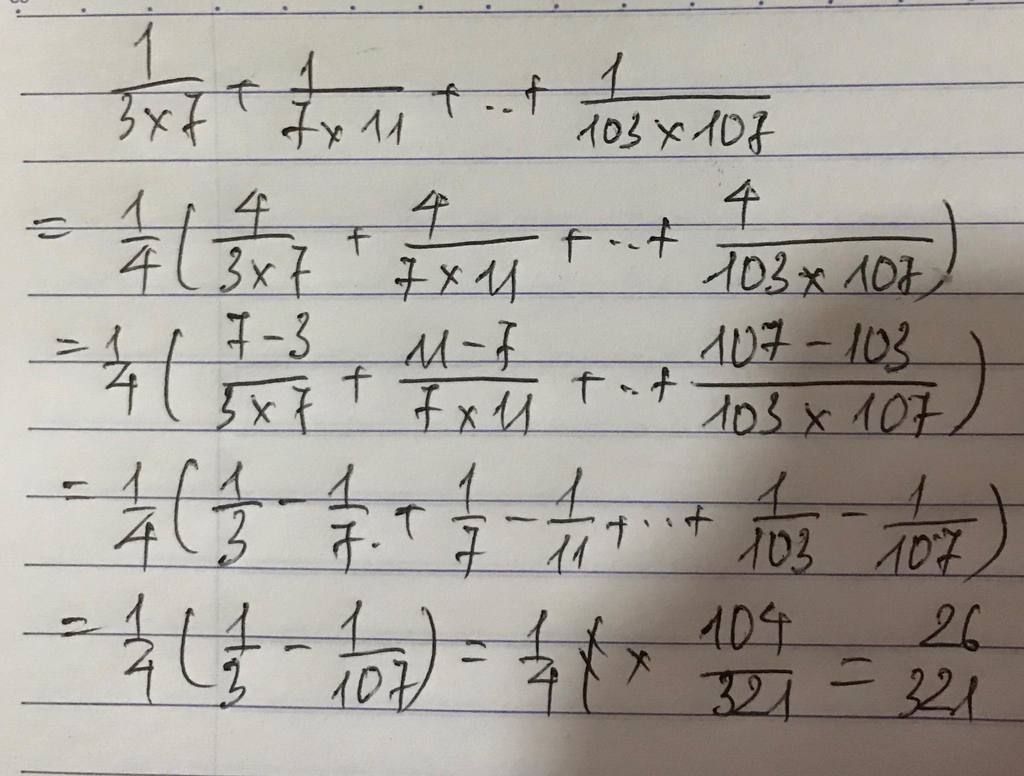 1/(3×7) + 1/(7×11) + ..+ 1/(103×107)
= 1/4 ( 4/(3×7) + 4/(7×11) + ..+ 4/(103×107) )
= 1/4 ( (7-3)/(3×7) + (11-7)/(7×11) + ..+ (107-103)/(103×107) )
= 1/4 ( 1/3 - 1/7. + 1/7 - 1/11 + ..+ 1/103 - 1/107 )
= 1/4 ( 1/3 - 1/107 ) = 1/4 × 104/321 = 26/321